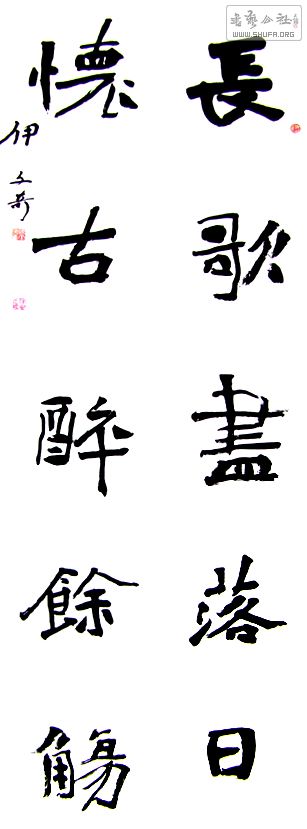 長歌盡落日
懷古醉餘觴
書藝公社
WWW.SHUFA.ORG